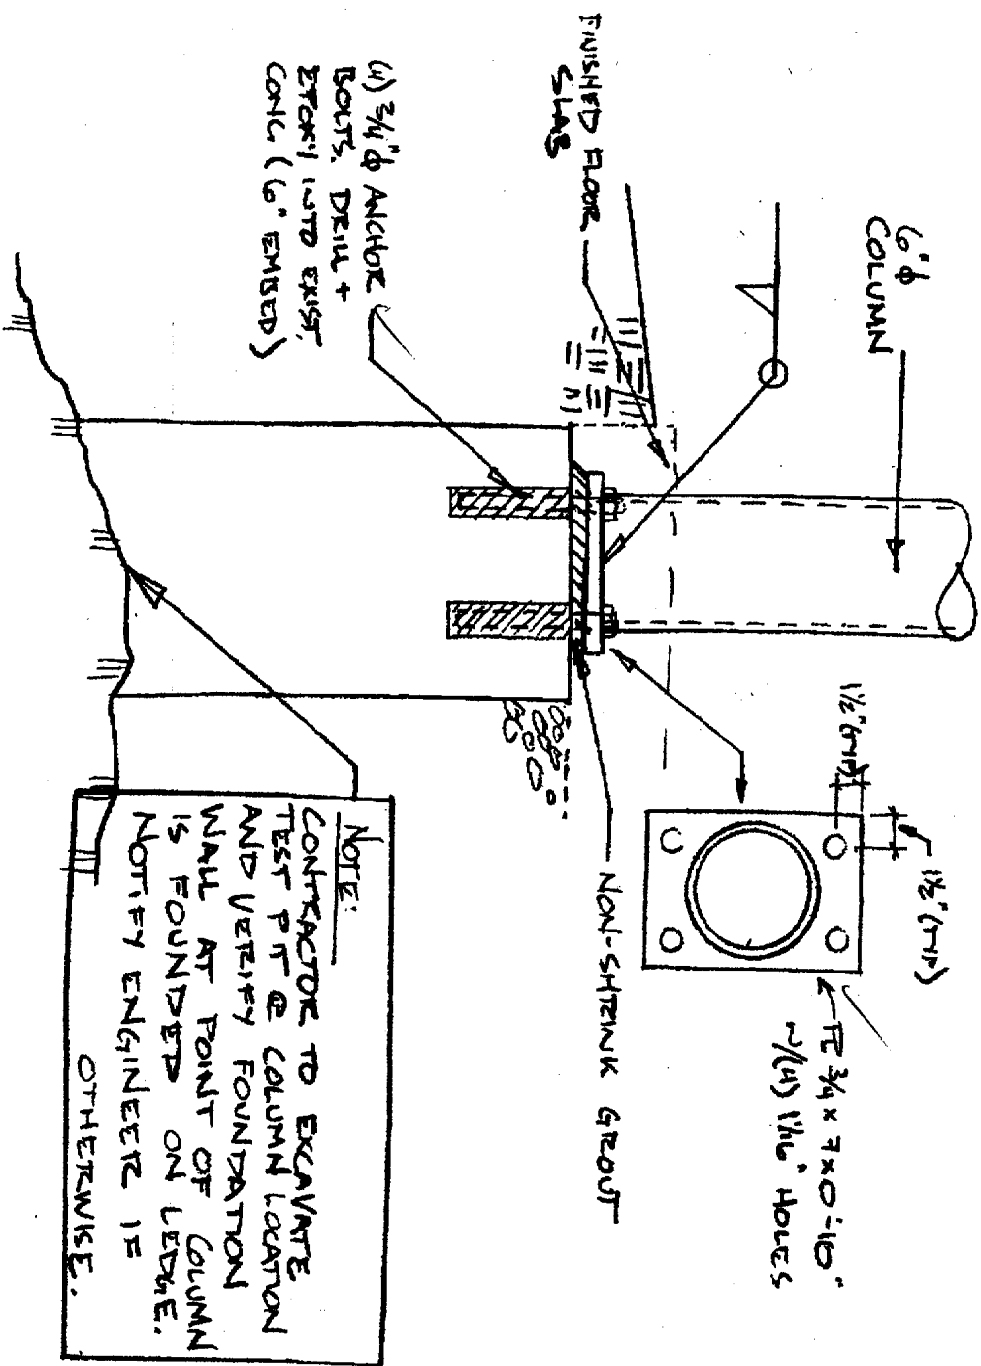 6"φ
COLUMN
FINISHED FLOOR
SLAB
(4) 3/4"φ ANCHOR
BOLTS. DRILL +
EPOXY INTO EXIST.
CONC (6" EMBED)
1 1/2" (TYP)
1 1/2" (TYP)
PL 3/4 x 7 x 0'-10"
w/(4) 1 1/16" HOLES
NON-SHRINK GROUT
NOTE:
CONTRACTOR TO EXCAVATE
TEST PIT @ COLUMN LOCATION
AND VERIFY FOUNDATION
WALL AT POINT OF COLUMN
IS FOUNDED ON LEDGE.
NOTIFY ENGINEER IF
OTHERWISE.